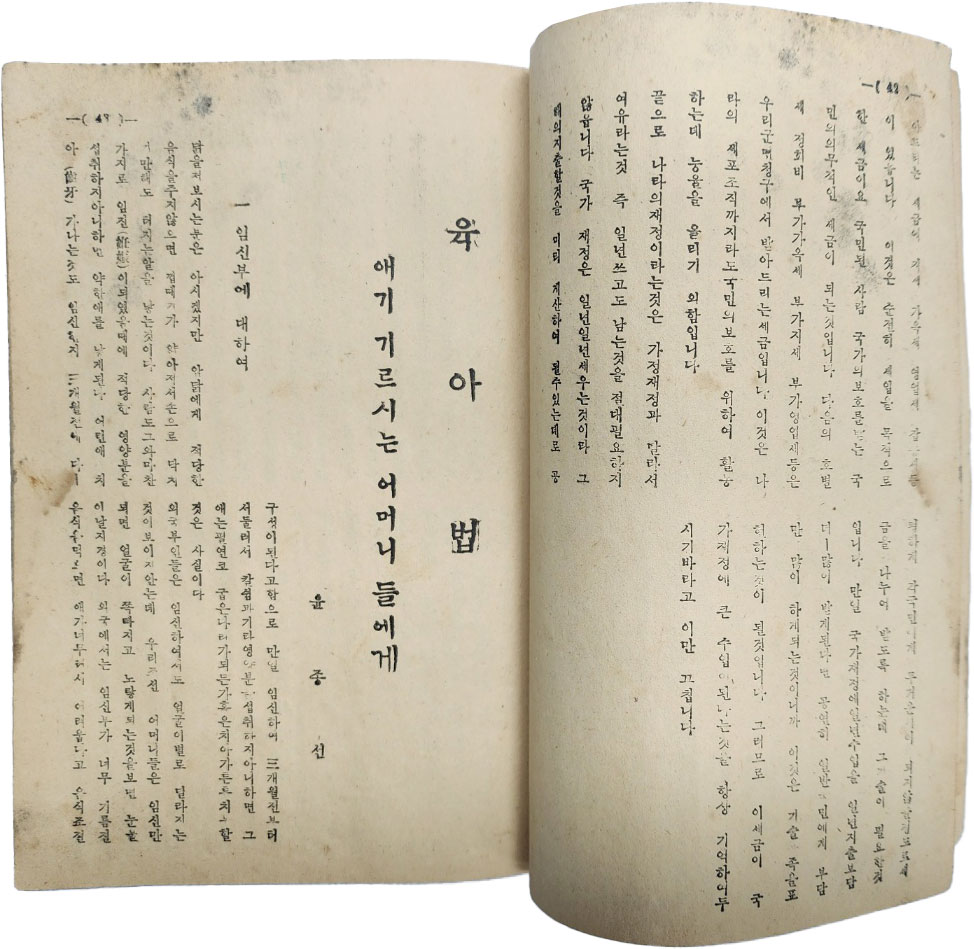 —( 42 )—
이 있습니다 이것은 순전히 세입을 목적으로
한 세금이요 국민된 사람 국가의보호를받는 국
민의의무적인 세금이 되는것입니다 다음의 호별
세 정회비 부가가옥세 부가지세 부가영업세등은
우리군면청구에서 받아드리는세금입니다 이것은 나
라의 제포조직까지라도국민의보호를 위하여 활동
하는데 능율을 올리기 의함입니다
끝으로 나라의재정이라는것은 가정재정과 달라서
여유라는것 즉 일년쓰고도 남는것을 절대필요하지
않습니다 국가 재정은 일년일년세우는것이라 그
해의지출할것을 미리 계산하여 될수있는대로 공
금을 나누어 받도록 하는데 그 기술이 필요한것
입니다 만일 국가재정에일년수입금 일년지출보담
더많이 받게된다면 공연히 일반국민에게 부담
만 많이 하게되는것이니까 이것은 기술 부족을표
허하는것이 될것입니다 그러므로 이세금이 국
가재정에 큰 수입이된다는것을 항상 기억하여두
시기바라고 이만 끄칩니다
—( 43 )—
육아법
애기 기르시는 어머니들에게
윤종선
一 임신부에 대하여
닭을처보시는분은 아시겠지만 암닭에게 적당한
음식을주지않으면 껍데기가 얇아저서손으로 닥저
만해도 터지는알을 낳는것이다 사람도그와마찬
가지로 임진(姙娠)이되었을때에 적당한 영양분을
섭취하지아니하면 약한애를 낳게된다 어린애 치
아(齒牙)가나는것도 임신한지 三개월전에 다
구성이된다고함으로 만일 임신하여 三개월전보터
서둘러서 칼슘과기타영양분을섭취하지아니하면 그
애는필연코 굽은다리가되든가혹은치아가든트치못할
것은 사실이다
외국부인들은 임신하여서도 얼굴이별로 달라지는
것이보이지안는데 우리조선 어머니들은 임신만
되면 얼굴이 쪽타지고 노랗게되는것을보면 눈물
이날지경이다 외국에서는 임신부가 너무 기름진
음식을먹으면 애가너무커서 어려웁다고 음식조절